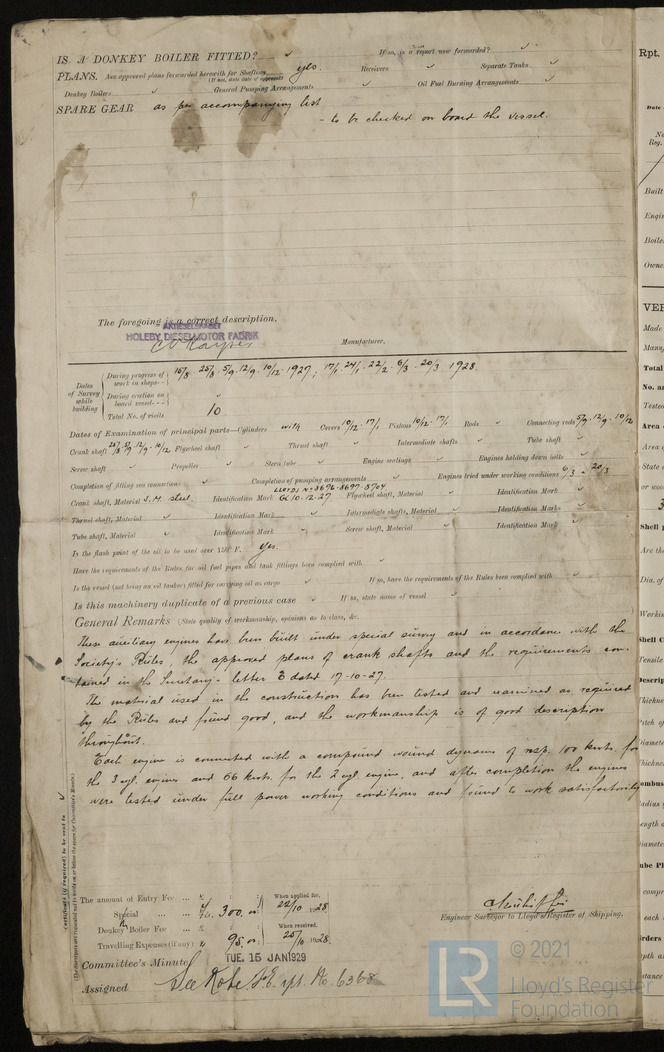 IS A DONKEY BOILER FITTED? ✓ If so, is a report now forwarded? ✓
PLANS. Are approved plans forwarded herewith for Shafting yes. Receivers ✓ Separate Tanks ✓
(If not, state date of approval)
Donkey Boilers ✓ General Pumping Arrangements ✓ Oil Fuel Burning Arrangements ✓
SPARE GEAR as per accompanying list
- to be checked on board the vessel.
The foregoing is a correct description,
AKTIESELSKABET
HOLEBY DIESELMOTOR FABRIK
Manufacturer.
Dates of Survey while building
During progress of work in shops-- 15/8 25/8 5/9 12/9 10/12 1927; 17/1 24/1 22/2 6/3 20/3 1928.
During erection on board vessel--- ✓
Total No. of visits 10
Dates of Examination of principal parts—Cylinders with Covers 10/12 17/1 Pistons 10/12 17/1 Rods ✓ Connecting rods 5/9 12/9 10/12
Crank shaft 25/8 5/9 12/9 10/12 Flywheel shaft ✓ Thrust shaft ✓ Intermediate shafts ✓ Tube shaft ✓
Screw shaft ✓ Propeller ✓ Stern tube ✓ Engine seatings ✓ Engines holding down bolts ✓
Completion of filling sea connections ✓ Completion of pumping arrangements ✓ Engines tried under working conditions 6/3 - 20/3
LLOYDS No 3696-3697-3704
Crank shaft, Material S.M. steel. Identification Mark GK 10-12-27 Flywheel shaft, Material ✓ Identification Mark ✓
Thrust shaft, Material ✓ Identification Mark ✓ Intermediate shafts, Material ✓ Identification Marks ✓
Tube shaft, Material ✓ Identification Mark ✓ Screw shaft, Material ✓ Identification Mark ✓
Is the flash point of the oil to be used over 150° F. yes.
Have the requirements of the Rules for oil fuel pipes and tank fittings been complied with ✓
Is the vessel (not being an oil tanker) fitted for carrying oil as cargo ✓ If so, have the requirements of the Rules been complied with ✓
Is this machinery duplicate of a previous case ✓ If so, state name of vessel ✓
General Remarks (State quality of workmanship, opinions as to class, &c.
These auxiliary engines have been built under special survey and in accordance with the
Society's Rules, the approved plans of crank shafts and the requirements con-
tained in the Secretary's letter E dated 17-10-27.
The material used in the construction has been tested and examined as required
by the Rules and found good, and the workmanship is of good description
throughout.
Each engine is connected with a compound wound dynamo of resp. 100 kwts. for
the 3 cyl. engines and 66 kwts. for the 2 cyl engine, and after completion the engines
were tested under full power working conditions and found to work satisfactorily
Certificate (if required) to be sent to
(The Surveyors are requested not to write on or below the space for Committee's Minute.)
The amount of Entry Fee ... £ : : When applied for,
Special ... ... Kr. 300.00 22/10 1928.
Donkey Boiler Fee ... £ : : When received,
Travelling Expenses (if any) £ 95.00 25/10 1928.
Engineer Surveyor to Lloyd's Register of Shipping.
Committee's Minute TUE. 15 JAN 1929
Assigned See Kobe F.E. rpt. No. 6368
LR
© 2021
Lloyd's Register
Foundation
Rpt.
Date
No
Reg.
Built
Engi
Boile
Owne
VER
Made
Manu
Total
No. an
Tested
Area
Area
State
Shell p
Are th
Dia. of
Workin
Shell C
Tensile